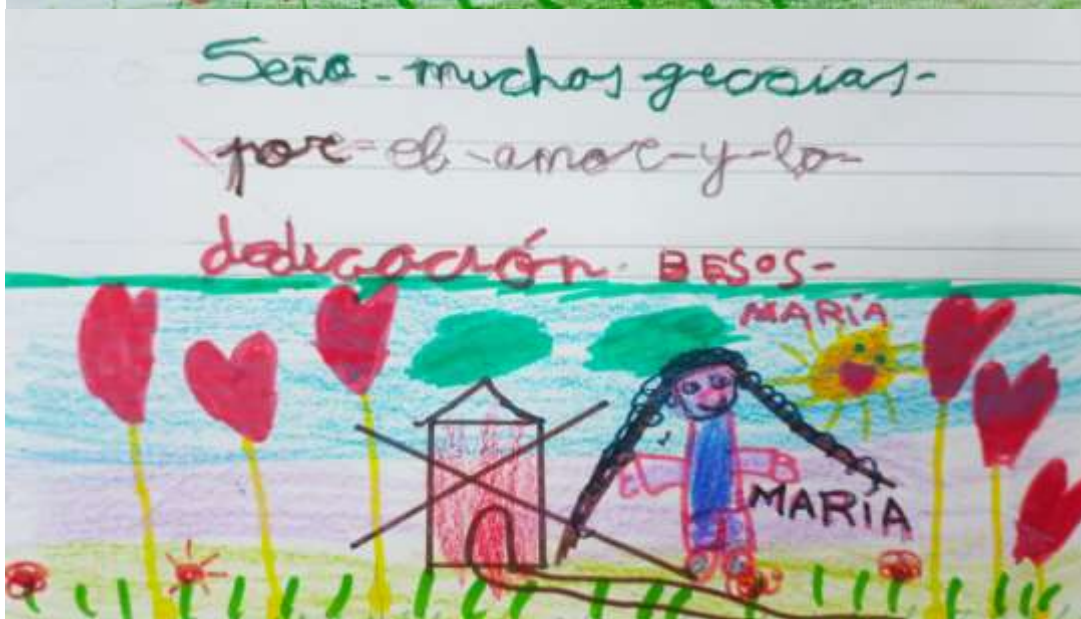 Seño - muchas gracias -
por - el - amor - y - la -
dedicación. BESOS -
MARÍA
MARÍA